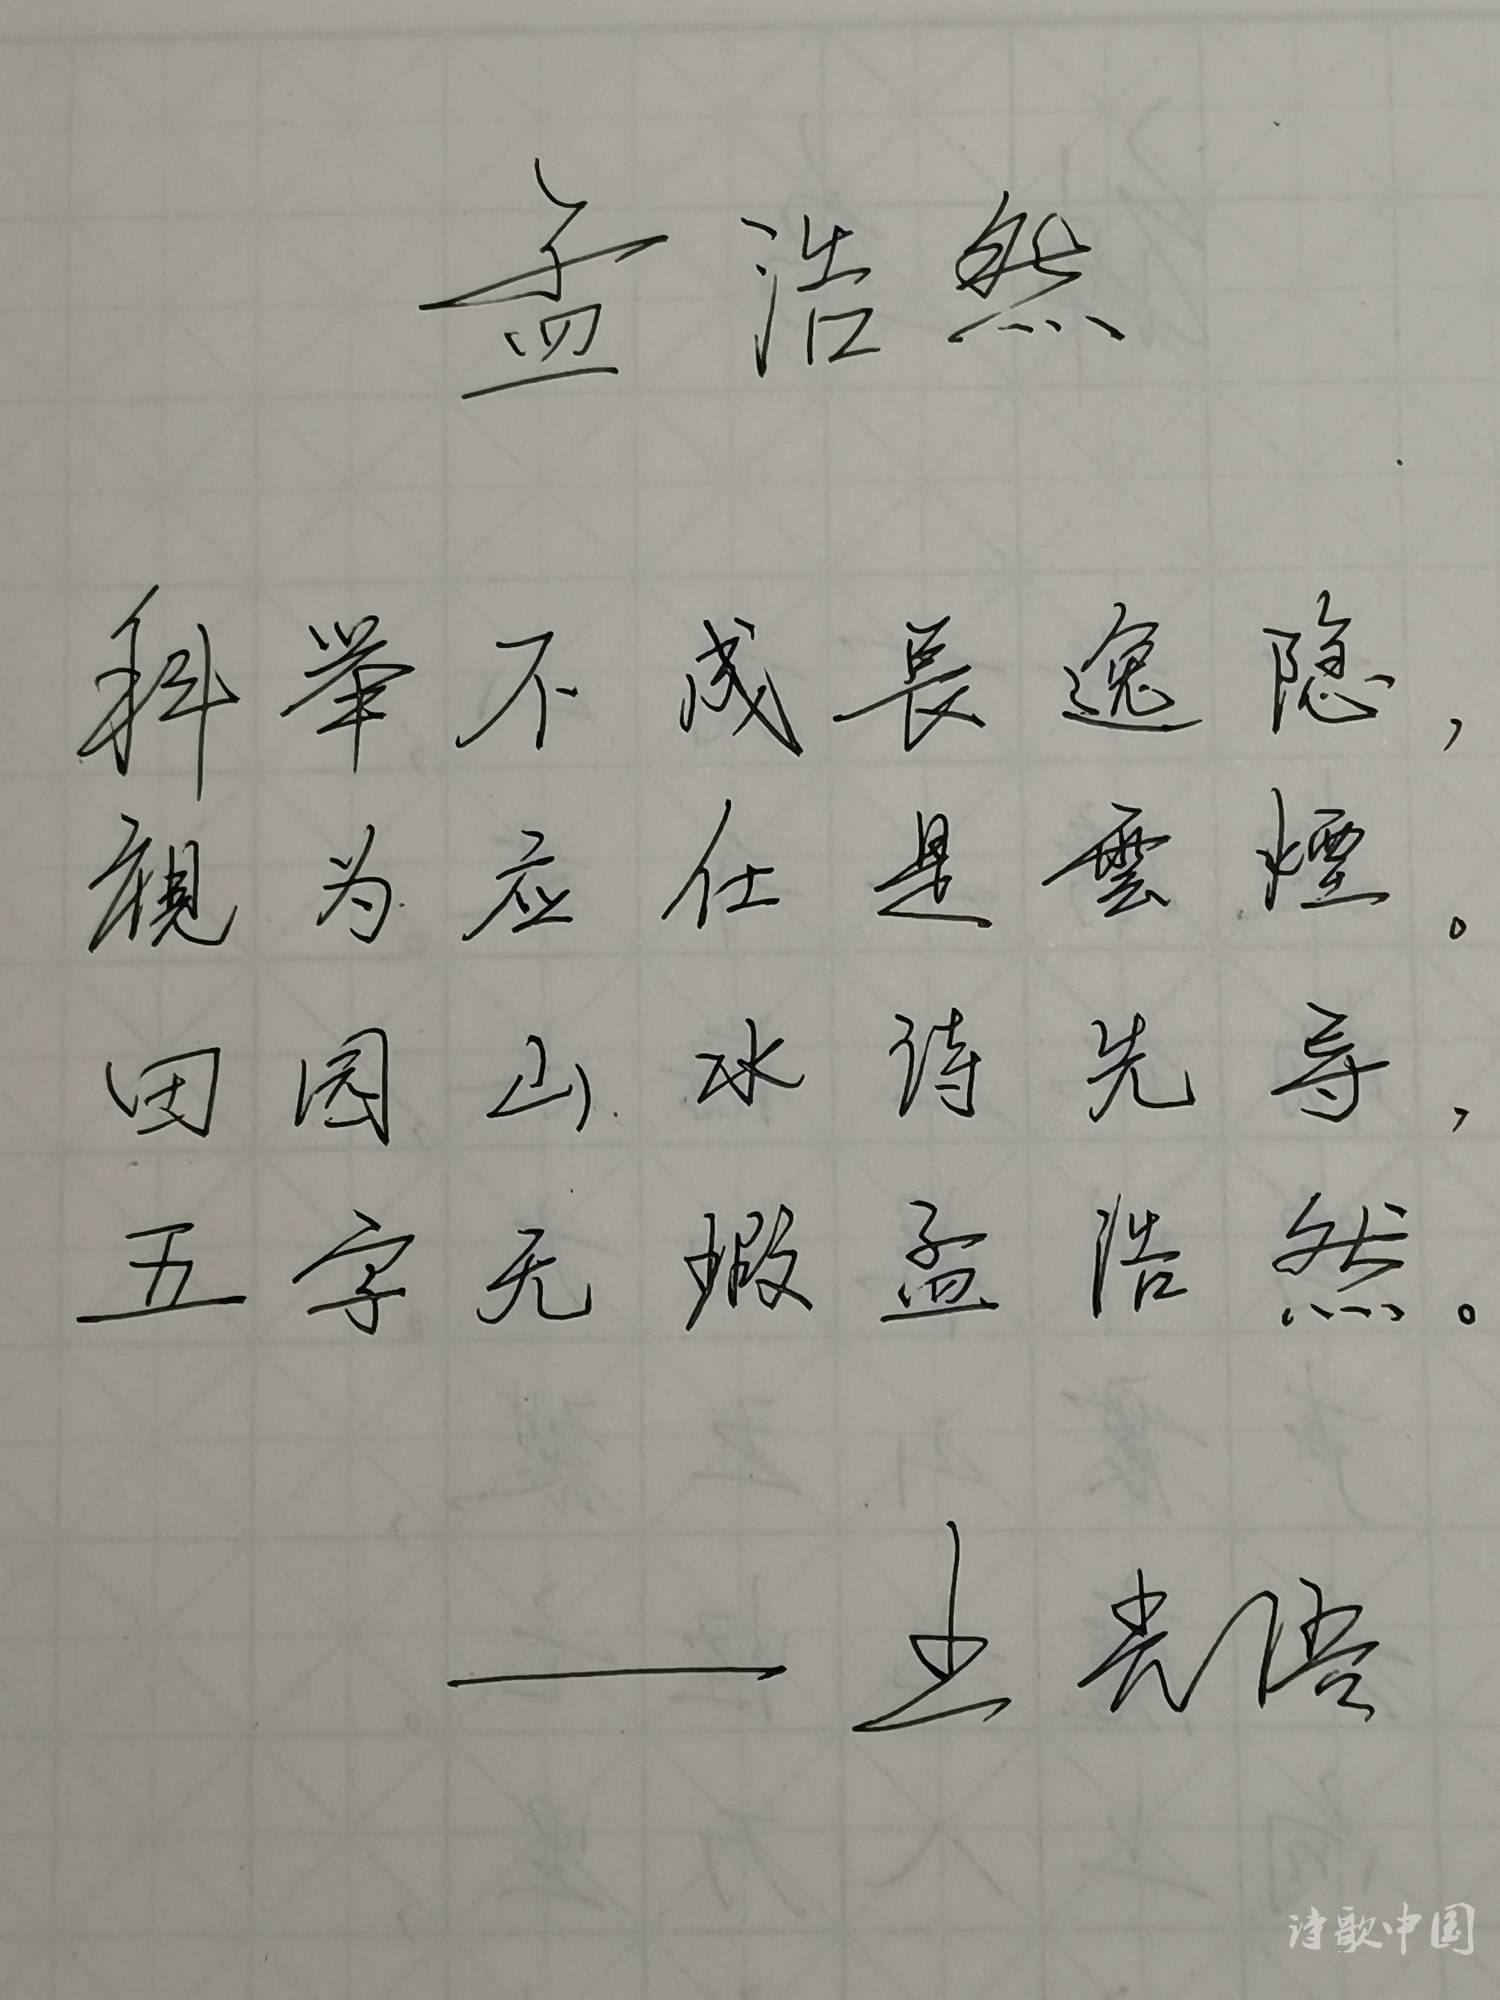 孟浩然
科举不成長逸隐，
视为应仕是雲煙。
田园山水诗先导，
五字无瑕孟浩然。
——王光语
诗歌中国